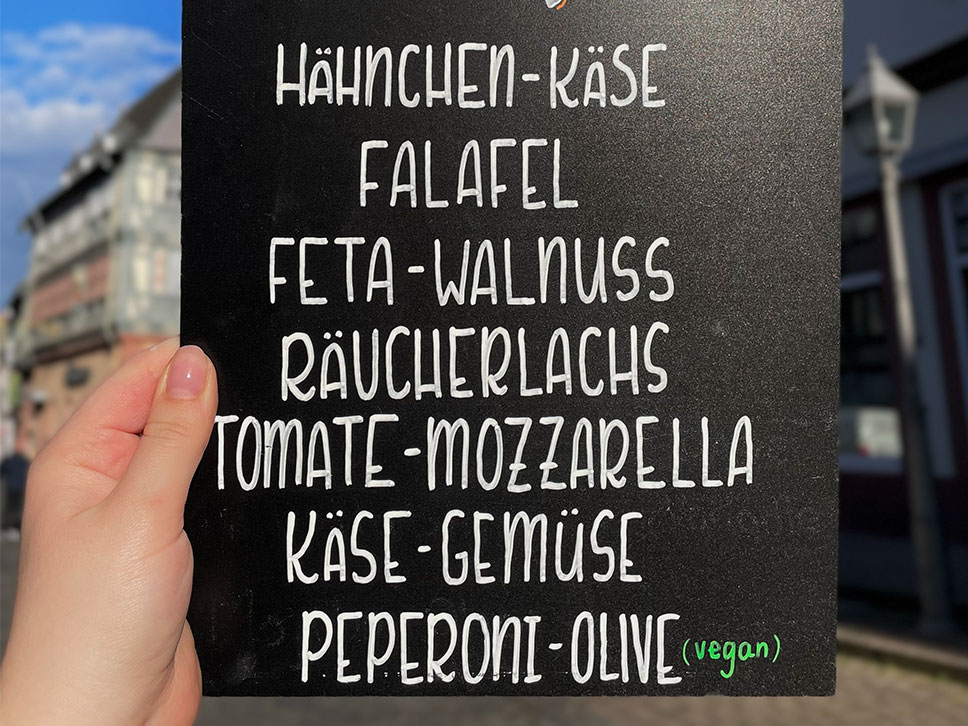 HÄHNCHEN-KÄSE
FALAFEL
FETA-WALNUSS
RÄUCHERLACHS
TOMATE-MOZZARELLA
KÄSE-GEMÜSE
PEPERONI-OLIVE (vegan)